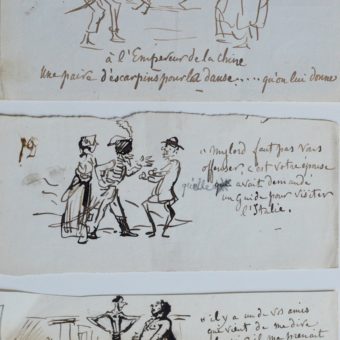 à l'Empereur de la Chine
Une paire d'escarpins pour la danse..... qu'on lui donne
« Mylord faut pas vous
offenser, c'est votre épouse
qu'elle avait demandé
un Guide pour visiter
l'Italie.
« il y a un de vos amis
qui vient de me dire
me prenait